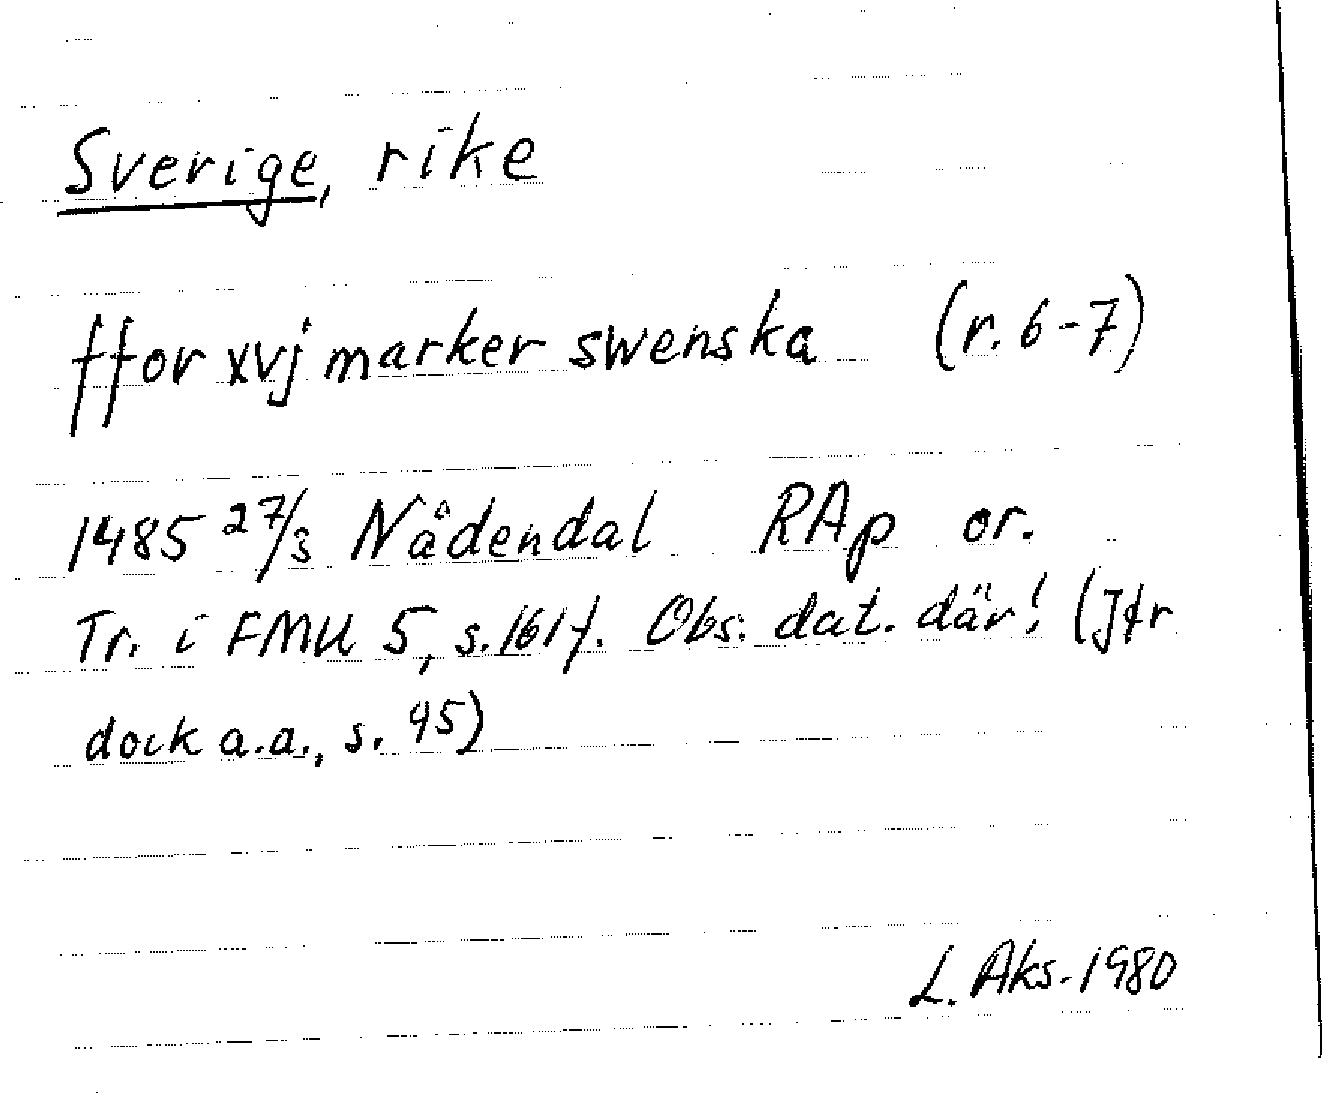 Sverige, rike
ffor xvj marker swenska (r. 6-7)
1485 27/3 Nådendal RAp or.
Tr. i FMU 5, s. 161 f. Obs. dat. där! (Jfr
dock a.a., s. 95)
L. Aks. 1980